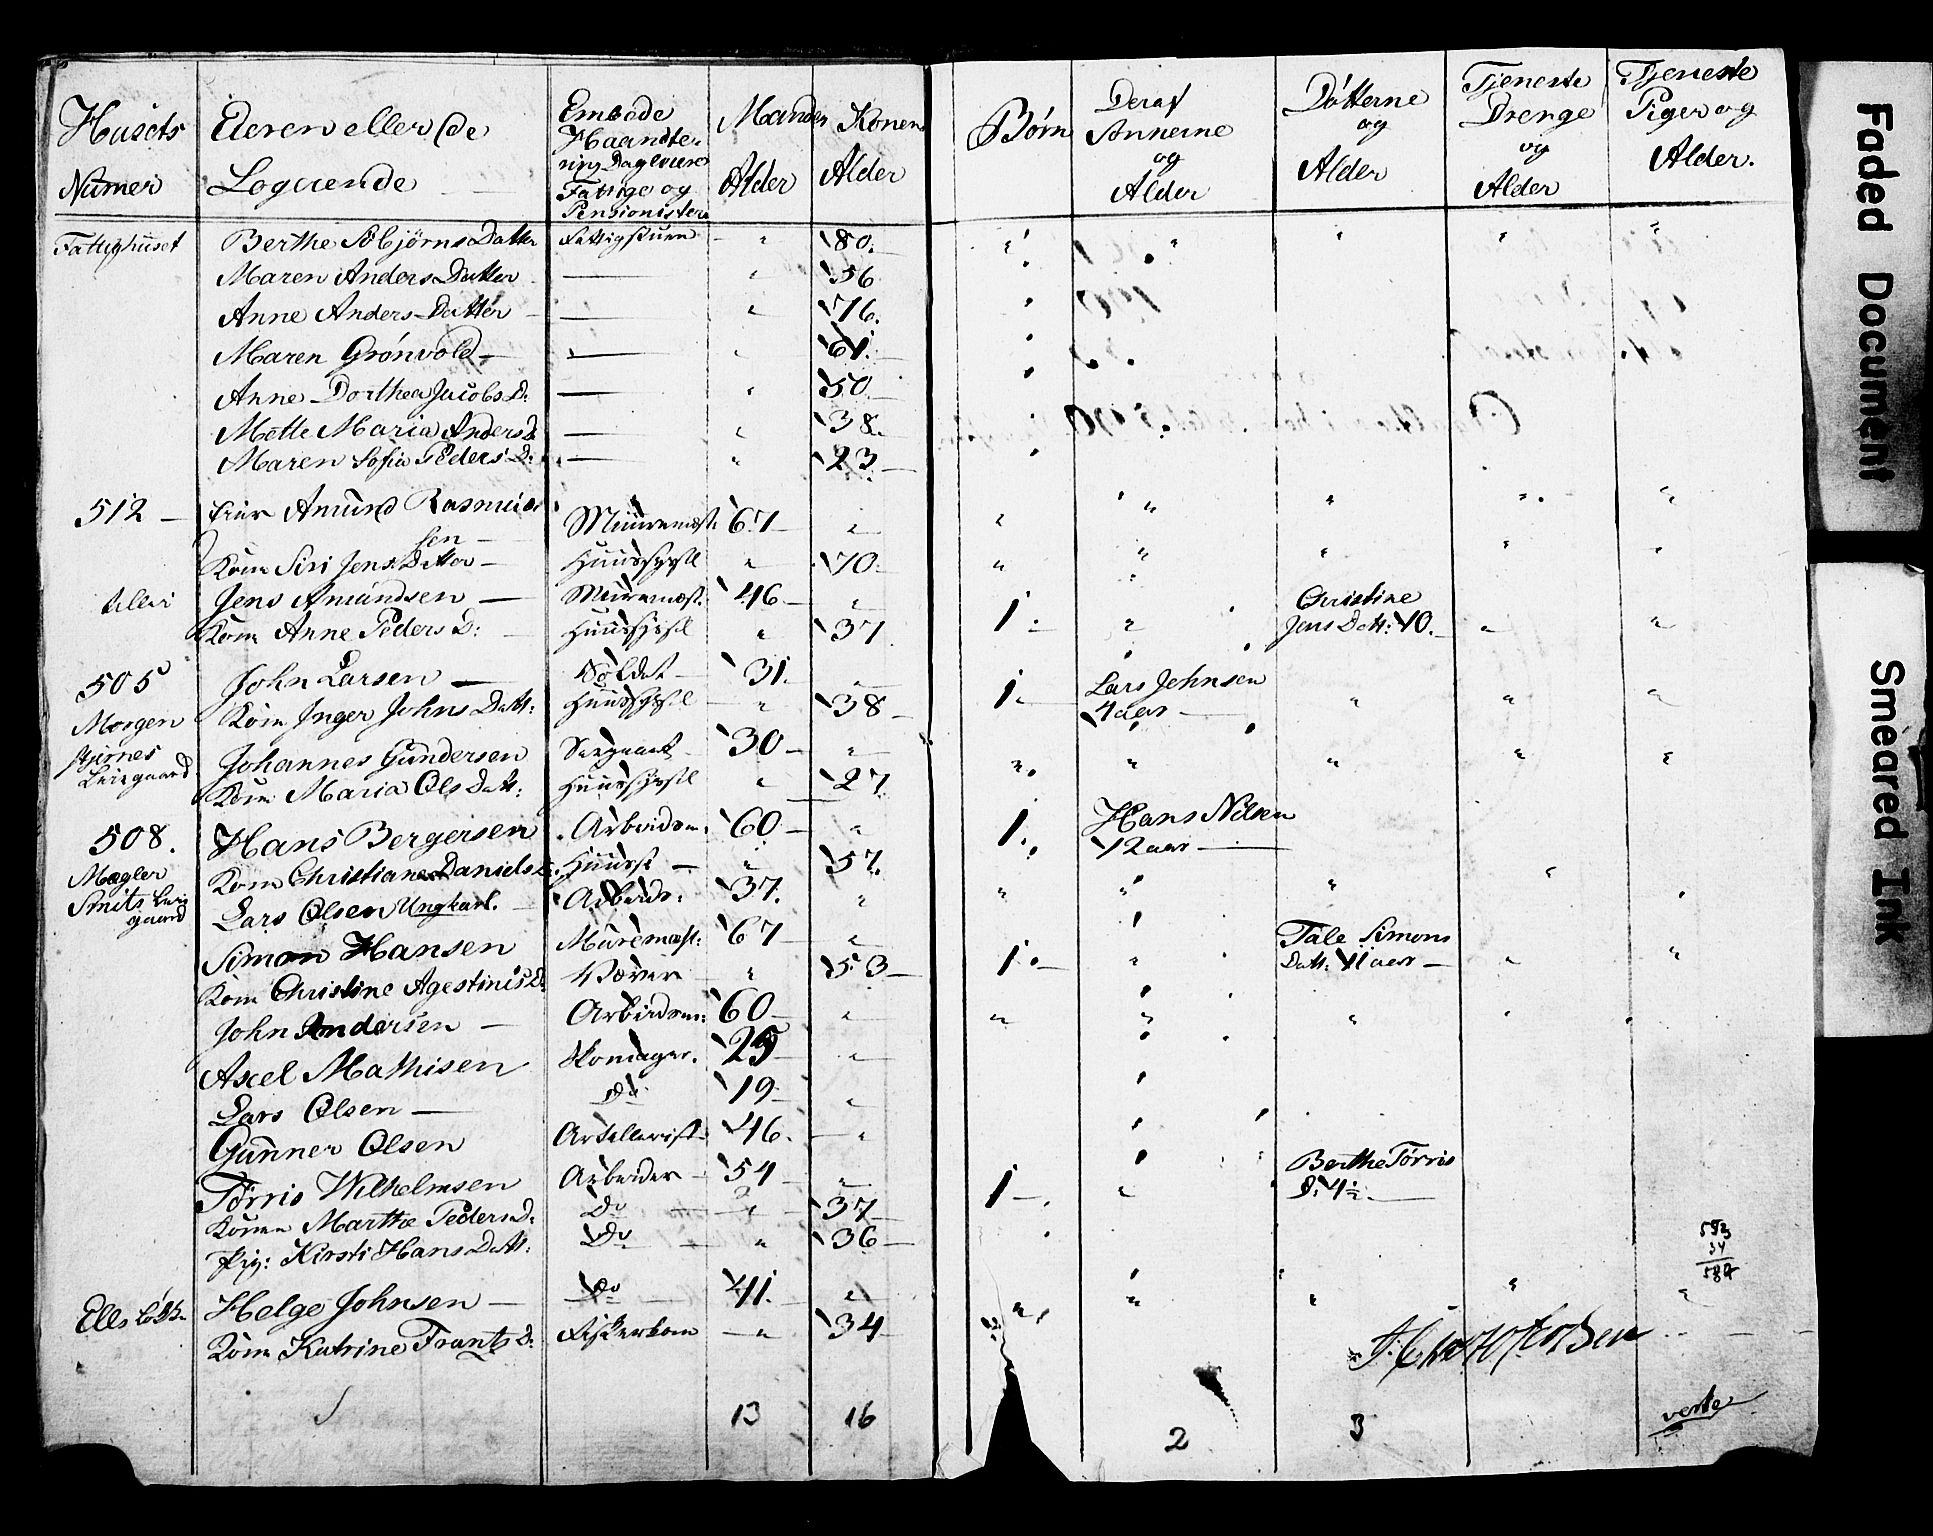 Husets Numer | Eieren eller de Logerende | Embede Haandte- ring Dagleiere Fattige og Pensionister | Mandens Alder | Konens Alder | Børn | Deraf Sønnerne og Alder | Døtterne og Alder | Tjeneste Drenge og Alder | Tjeneste Piger og Alder.
Fattighuset | Berthe Asbjørns Datter | Fattigstuen | " | 80. | " | " | " | " | "
Maren Anders Datter | — | " | 56
Anne Anders Datter | — | " | 76.
Maren Grønvold | — | " | 61.
Anne Dorthea Jacobs D: | — | " | 50
Mette Maria Anders D: | — | " | 38.
Maren Sofia Peders D: | — | " | 23
512 — | Amund Rasmus
sen — | Muurmest: | 67 — | "
Kone Siri Jens Datter — | Huussyssel | " | 70.
Jens Amundsen — | Muurmest: | 46 — | " | 1. | " | Christine
Kone Anne Peders D: | Huussyssel | " | 37 | Jens Datt: 10.
505 | John Larsen — | Soldat | 31. | " | 1. | Lars Johnsen
Morgen | Kone Inger Johns Datt: | Huussyssel | " | 38 | 4 aar —
stjernes | Johannes Gundersen | Sergeant | 30 — | "
Leiegaard | Kone Maria Ols Datt: | Huussyssel | " | 27.
508. | Hans Bergersen | Arbeidsm: | 60 — | " | 1. | Hans Nilsen
Mægler | Kone Christiane Daniels D: | Huuss: — | " | 57. | 12 aar —
Smits Leie | Lars Olsen Ungkarl. | Arbeids: | 37. | "
gaard
Simon Hansen | Muremest: | 67 | " | 1. — | " | Tale Simons
Kone Christine Agestinus D: | Væver | " | 53 — | Datt: 11 aar —
John Andersen — | Arbeidsm: | 60 — | "
Axel Mathisen | Skomager. | 25 | "
Lars Olsen — | Do | 19 | "
Gunner Olsen | Artellerist | 46. | "
Tørris Wilhelmsen | Arbeider | 54 | " | 1 — | " | Berthe Tørris
Konen Marthe Peders D: | Do | " | 37 | D: 4
Pig: Kirsti Hans Datt: | Do | " | 36 —
Helge Johnsen — | Do | 41. | "
Kone Katrine Frantz D: | Fiskerkone | " | 34
553
34
587
13 | 16 | 2 | 3
verte